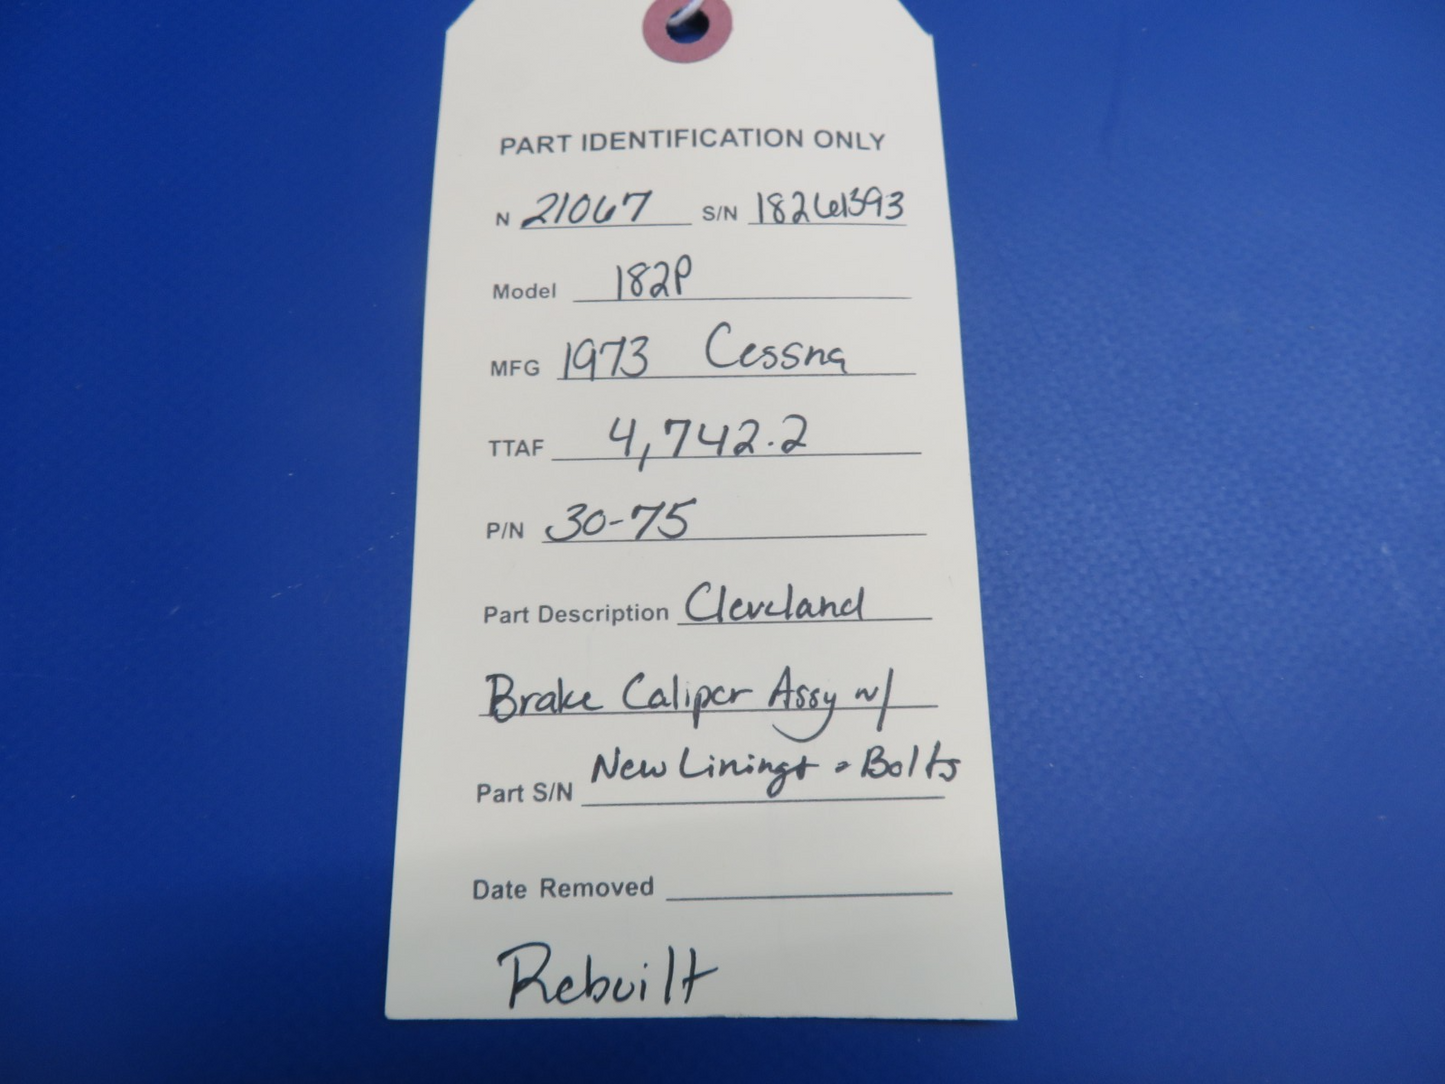 PART IDENTIFICATION ONLY
N 21067 S/N 18261393
Model 182P
MFG 1973 Cessna
TTAF 4,742.2
P/N 30-75
Part Description Cleveland
Brake Caliper Assy w/
New Linings + Bolts
Part S/N
Date Removed
Rebuilt